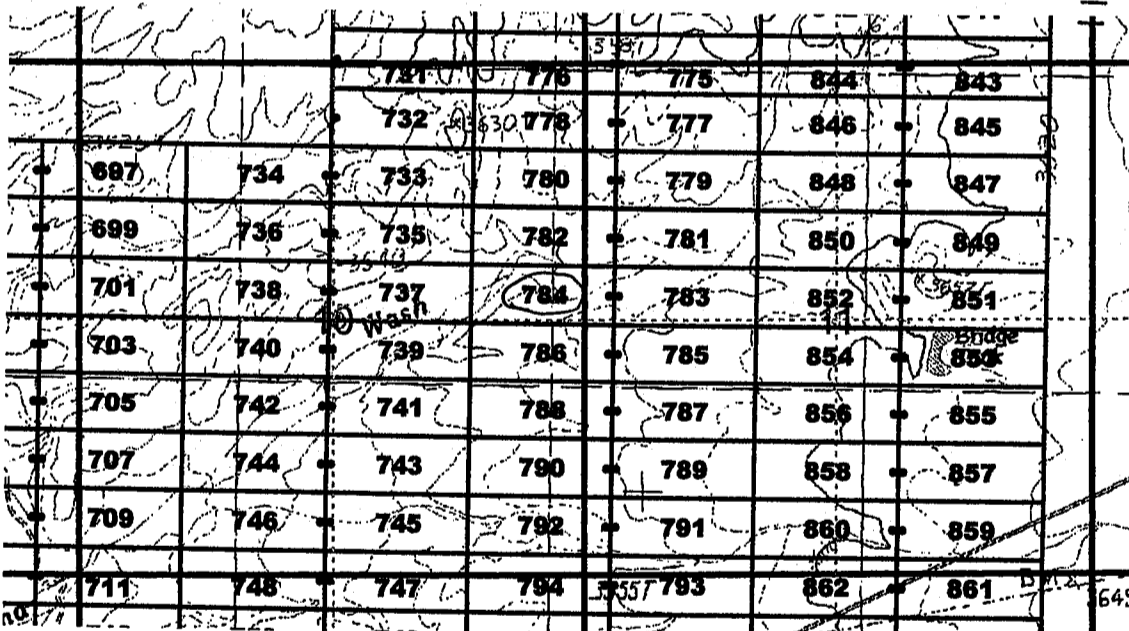 731 776 775 844 843
732 778 777 846 845
697 734 733 780 779 848 847
699 736 735 782 781 850 849
701 738 737 784 783 852 851
Wash
Bridge
703 740 739 786 785 854 853
705 742 741 788 787 856 855
707 744 743 790 789 858 857
709 746 745 792 791 860 859
711 748 747 794 3555T 793 862 861